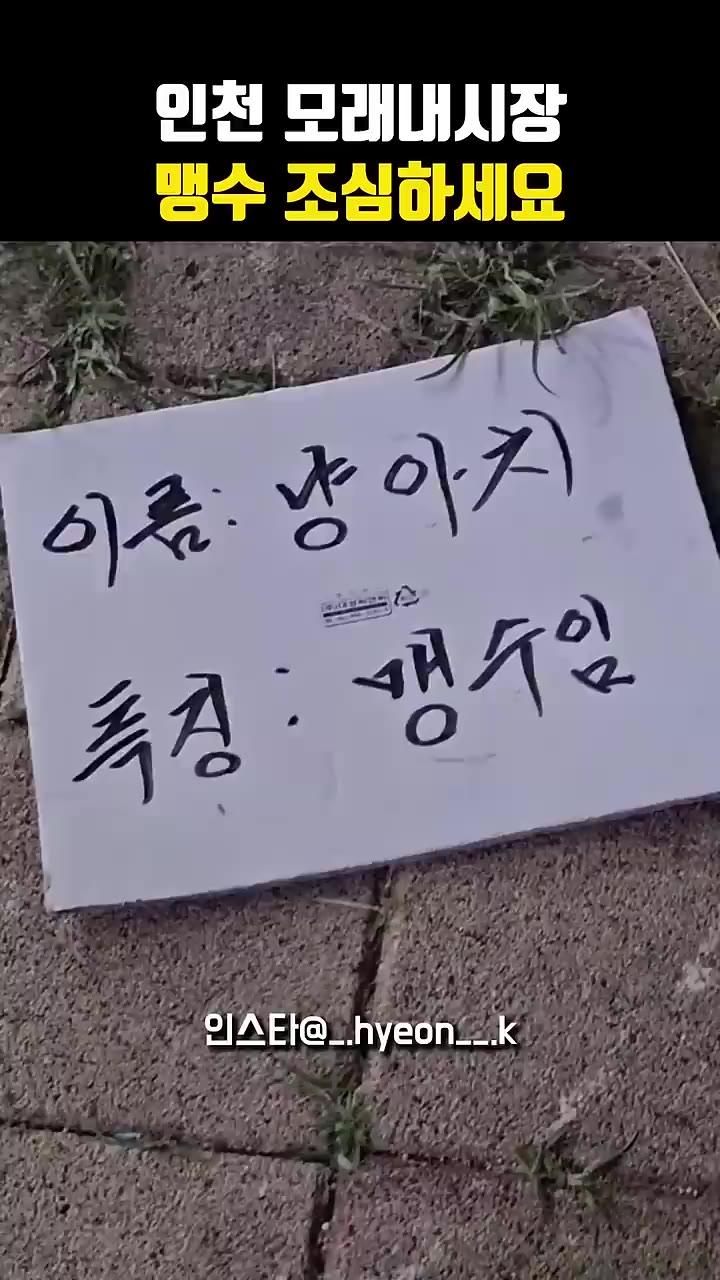 인천 모래내시장
맹수 조심하세요
이름: 냥아치
특징: 맹수임
인스타@_.hyeon__.k